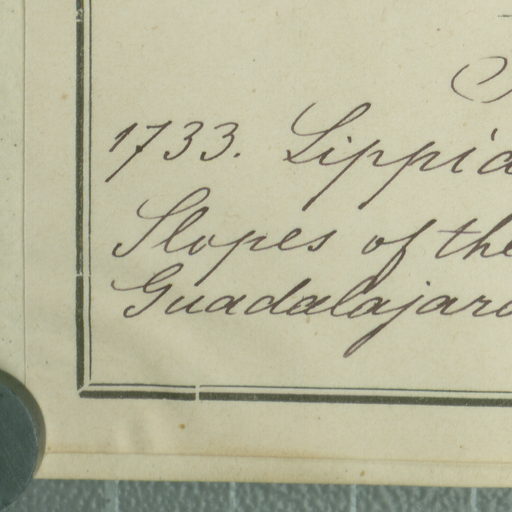 1733. Lippia
Slopes of the
Guadalajara